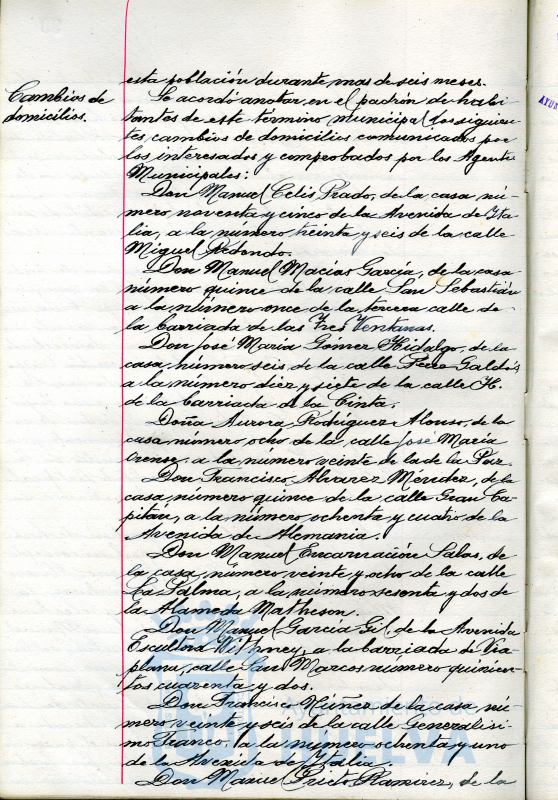 Cambios de
domicilios.
esta población durante mas de seis meses.
Se acordó anotar en el padrón de habi-
tantes de este término municipal los siguien-
tes cambios de domicilios comunicados por
los interesados y comprobados por los Agentes
Municipales:
Don Manuel Celis Prado, de la casa nú-
mero noventa y cinco de la Avenida de Ita-
lia, a la número treinta y seis de la calle
Miguel Redondo.
Don Manuel Macías García, de la casa
número quince de la calle San Sebastián
a la número once de la tercera calle de
la barriada de las Tres Ventanas.
Don José María Gómez Hidalgo, de la
casa número seis de la calle Perez Galdós
a la número diez y siete de la calle H.
de la barriada de la Cinta.
Doña Aurora Rodríguez Alonso, de la
casa número ocho de la calle José María
Orense, a la número veinte de la de la Paz.
Don Francisco Alvarez Méndez, de la
casa número quince de la calle Gran Ca-
pitán, a la número ochenta y cuatro de la
Avenida de Alemania.
Don Manuel Encarnación Salas, de
la casa número veinte y ocho de la calle
La Palma, a la número sesenta y dos de
la Alameda Matheson.
Don Manuel García Gil, de la Avenida
Escultora Withney, a la barriada de Via-
plana, calle San Marcos número quinien-
tos cuarenta y dos.
Don Francisco Núñez de la casa nú-
mero veinte y seis de la calle Generalísi-
mo Franco, a la número ochenta y uno
de la Avenida de Italia.
Don Manuel Prieto Ramírez, de la
AYUN
HUELVA